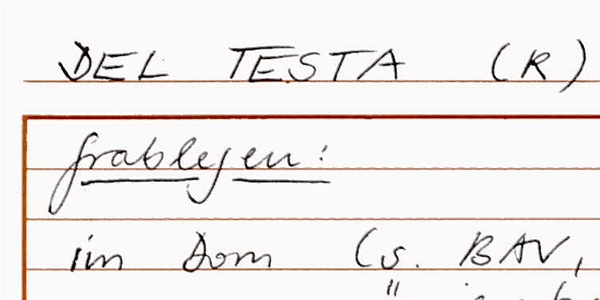 DEL TESTA (R)
Grablegen:
im Dom (s. BAV,
"